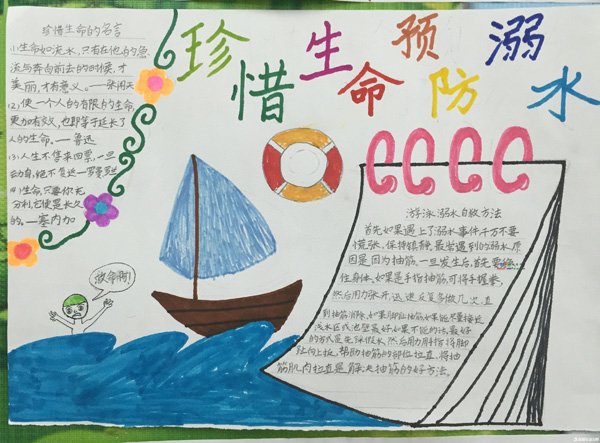 珍惜生命预防溺水
珍惜生命的名言
1)生命如流水,只有在他的急
流与奔向前去的时候,才
美丽,才有意义。——张闻天
(2)使一个人的有限的生命,
更加有效,也即等于延长了
人的生命。——鲁迅
(3)人生不售来回票,一旦
动身,绝不能返——罗曼罗兰
4)生命,只要你充
分利它便是长久
的。——塞内加
救命啊!
游泳溺水自救方法
首先如果遇上了溺水事件千万不要
慌张,保持镇静,最常遇到的溺水原
因是因为抽筋,一旦发生后,首先要
住身体。如果是手指抽筋,可将手握拳,
然后用力张开,迅速反复多做几次,直
到抽筋消除,如果脚趾抽筋如果能尽量接近
浅水区或池壁最好,如果不能的话,最好
的方式是先深吸水,然后用力用指将脚
趾向上扳,帮助抽筋的部位拉直,将抽
筋肌肉拉直是解决抽筋的好方法。